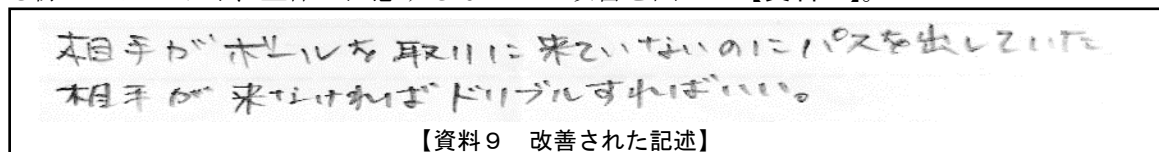 相手がボールを取りに来ていないのにパスを出していた
相手が来なければドリブルすればいい。
【資料9　改善された記述】